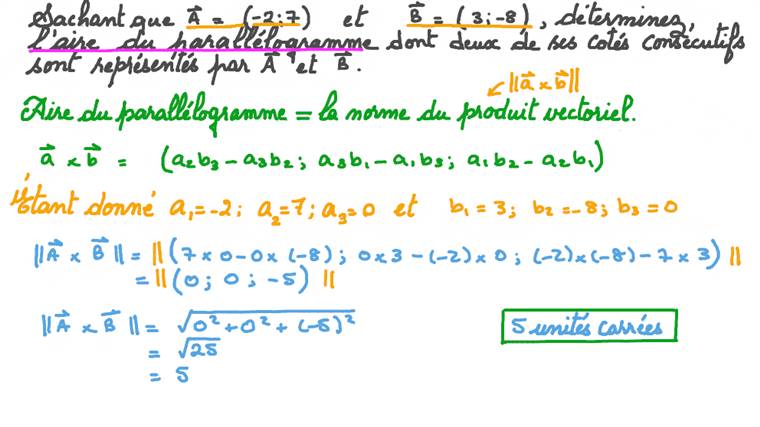 Sachant que A⃗ = (-2;7) et B⃗ = (3;-8), déterminez,
l'aire du parallélogramme dont deux de ses cotés consécutifs
sont représentés par A⃗ et B⃗.
||a⃗ × b⃗||
Aire du parallélogramme = la norme du produit vectoriel.
a⃗ × b⃗ = (a₂b₃ - a₃b₂; a₃b₁ - a₁b₃; a₁b₂ - a₂b₁)
Étant donné a₁ = -2; a₂ = 7; a₃ = 0 et b₁ = 3; b₂ = -8; b₃ = 0
||A⃗ × B⃗|| = ||(7 × 0 - 0 × (-8); 0 × 3 - (-2) × 0; (-2) × (-8) - 7 × 3)||
= ||(0; 0; -5)||
||A⃗ × B⃗|| = √(0² + 0² + (-5)²)
= √25
= 5
5 unités carrées